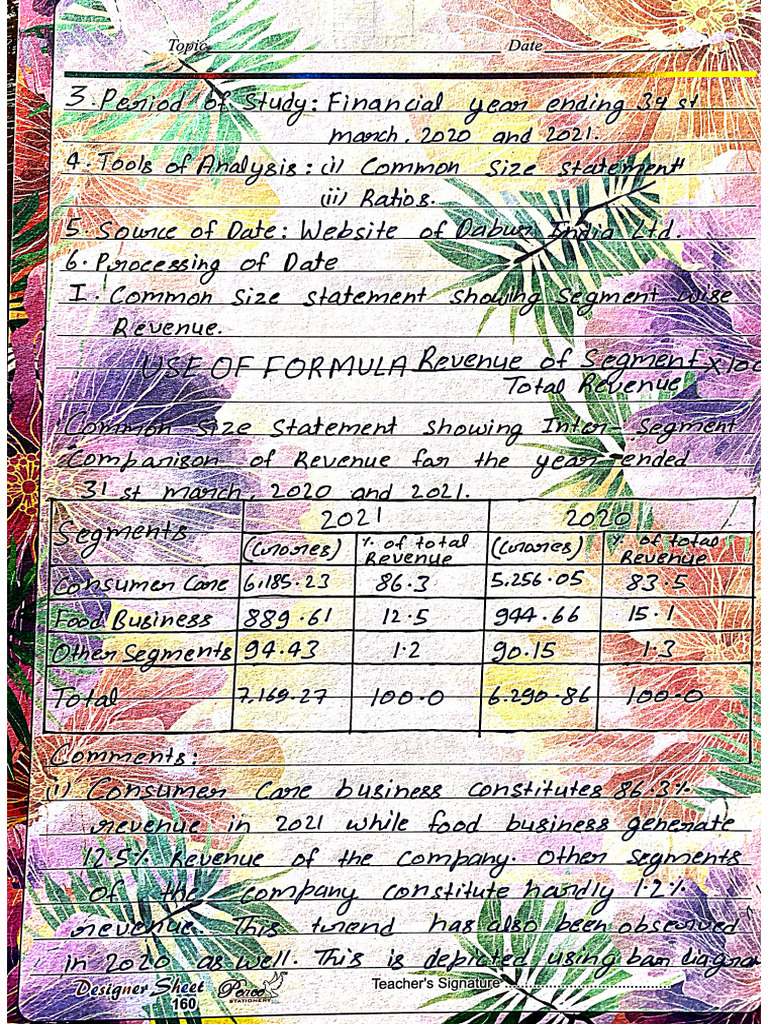 Topic Date
3. Period of Study: Financial year ending 31 st
march, 2020 and 2021.
4. Tools of Analysis: (i) Common Size statement
(ii) Ratios.
5. Source of Date: Website of Dabur India Ltd.
6. Processing of Date
I. Common size statement showing segment wise
Revenue.
USE OF FORMULA Revenue of Segment × 100
Total Revenue
Common size statement showing Inter-segment
Comparison of Revenue for the year ended
31 st march, 2020 and 2021.
Segments 2021 2020
(Crores) % of total Revenue (Crores) % of total Revenue
Consumer Care 6,185.23 86.3 5,256.05 83.5
Food Business 889.61 12.5 944.66 15.1
Other Segments 94.43 1.2 90.15 1.3
Total 7,169.27 100.0 6,290.86 100.0
Comments:
(i) Consumer Care business constitutes 86.3%
revenue in 2021 while food business generate
12.5% Revenue of the company. Other segments
of the company constitute hardly 1.2%
revenue. This trend has also been observed
in 2020 as well. This is depicted using bar diagram
Designer Sheet Teacher's Signature
160 STATIONERY